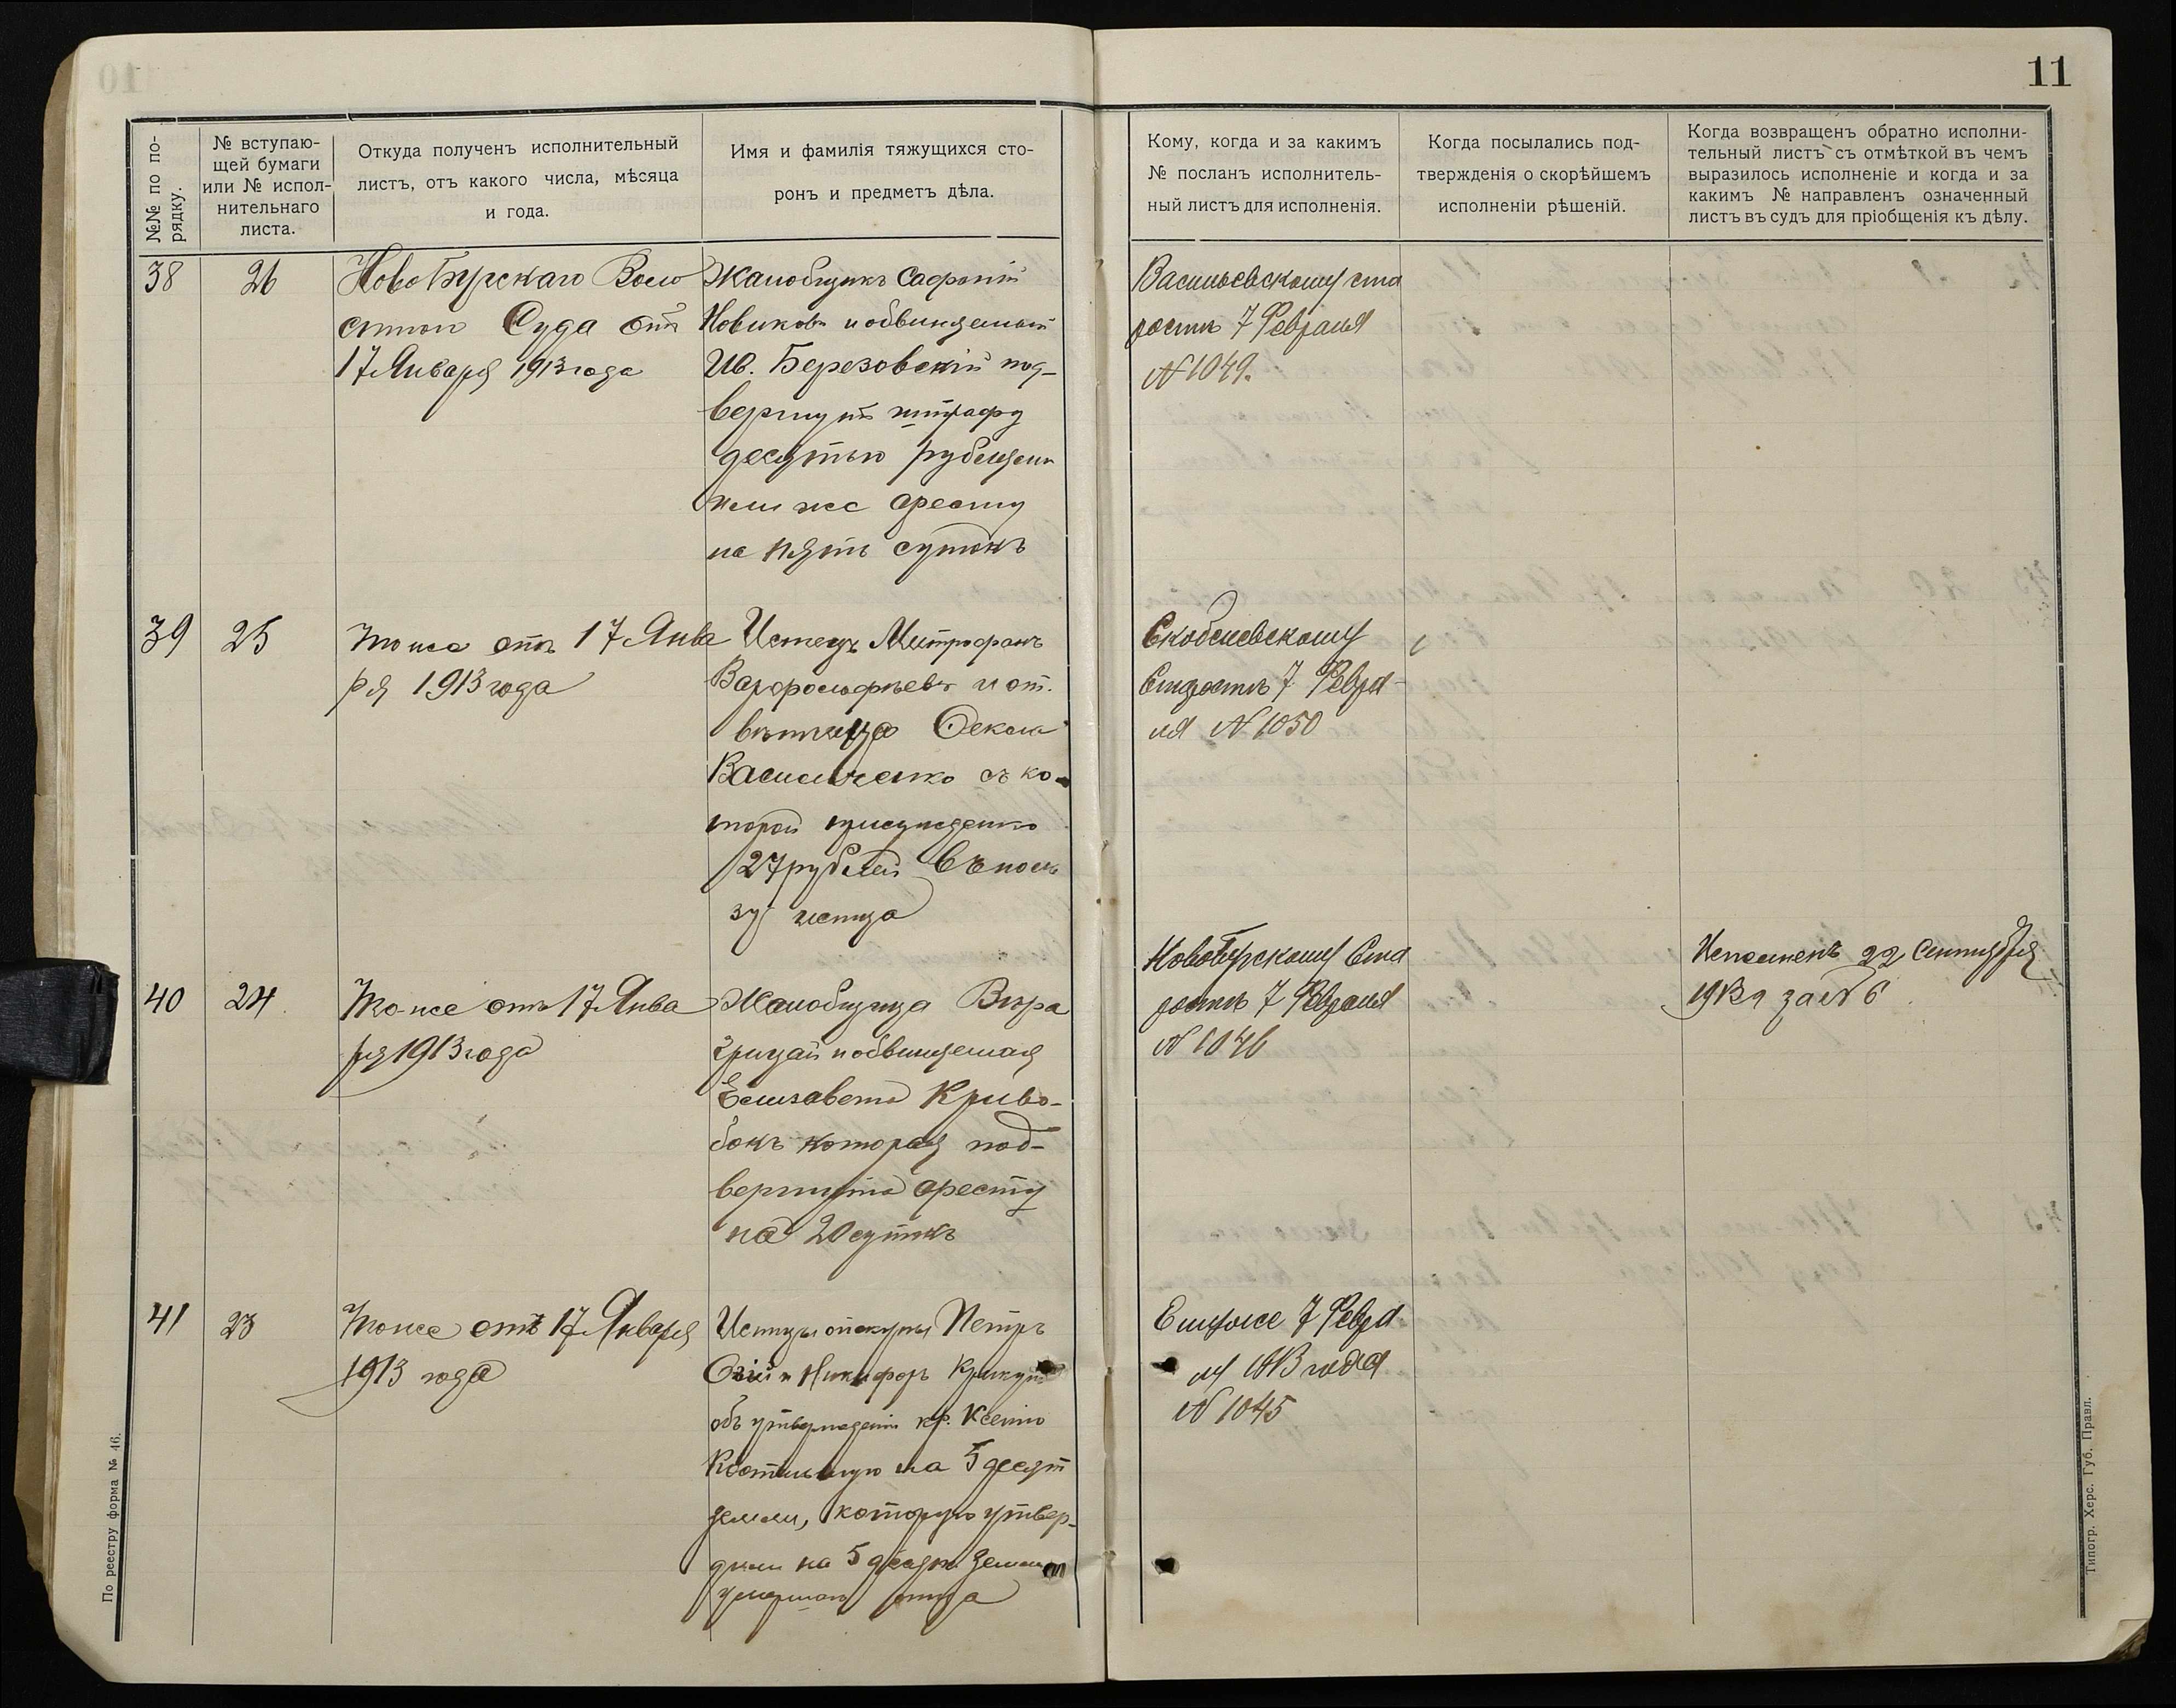 11
№№ по по-
рядку.
№ вступаю-
щей бумаги
или № испол-
нительнаго
листа.
Откуда полученъ исполнительный
листъ, отъ какого числа, мѣсяца
и года.
Имя и фамилія тяжущихся сто-
ронъ и предметъ дѣла.
Кому, когда и за какимъ
№ посланъ исполнитель-
ный листъ для исполненія.
Когда посылались под-
твержденія о скорѣйшемъ
исполненіи рѣшеній.
Когда возвращенъ обратно исполни-
тельный листъ съ отмѣткой въ чемъ
выразилось исполненіе и когда и за
какимъ № направленъ означенный
листъ въ судъ для пріобщенія къ дѣлу.
38
26
НовоБугскаго Воло
стного Суда отъ
17 Января 1913 года
Жалобщикъ Сафроній
Новиковъ и обвиняемый
Ив. Березовскій под-
вергнутъ штрафу
десятью рублями
или же аресту
на пять сутокъ
Васильевскому ста
ростѣ 7 Февраля
№ 1049.
39
25
Тоже отъ 17 Янва
ря 1913 года
Истецъ Митрофанъ
и от.
вѣтчица Фекла
Василенко съ ко-
торой присуждено
27 рублей въ поль
зу истца
Скобелевскому
Старостѣ 7 Февра-
ля № 1050
40
24.
Тоже отъ 17 Янва
ря 1913 года
Жалобщица Вѣра
Грицай и обвиняемая
Елизавета Криво-
бокъ которая под-
вергнута аресту
на 20 сутокъ
Новобугскому Ста
ростѣ 7 Февраля
№ 1046
Исполненъ 22 Сентября
1913 г за № 6
41
23
Тоже отъ 17 Января
1913 года
Истцы опекуны Петръ
и Никифоръ Крикунъ
объ утвержденіи кр. Ксенію
на 5 десят
земли, которую утвер-
дили на 5 десят. земли
умершаго отца
Ему же 7 Февра
ля 1913 года
№ 1045
По реестру форма № 46.
Типогр. Херс. Губ. Правл.